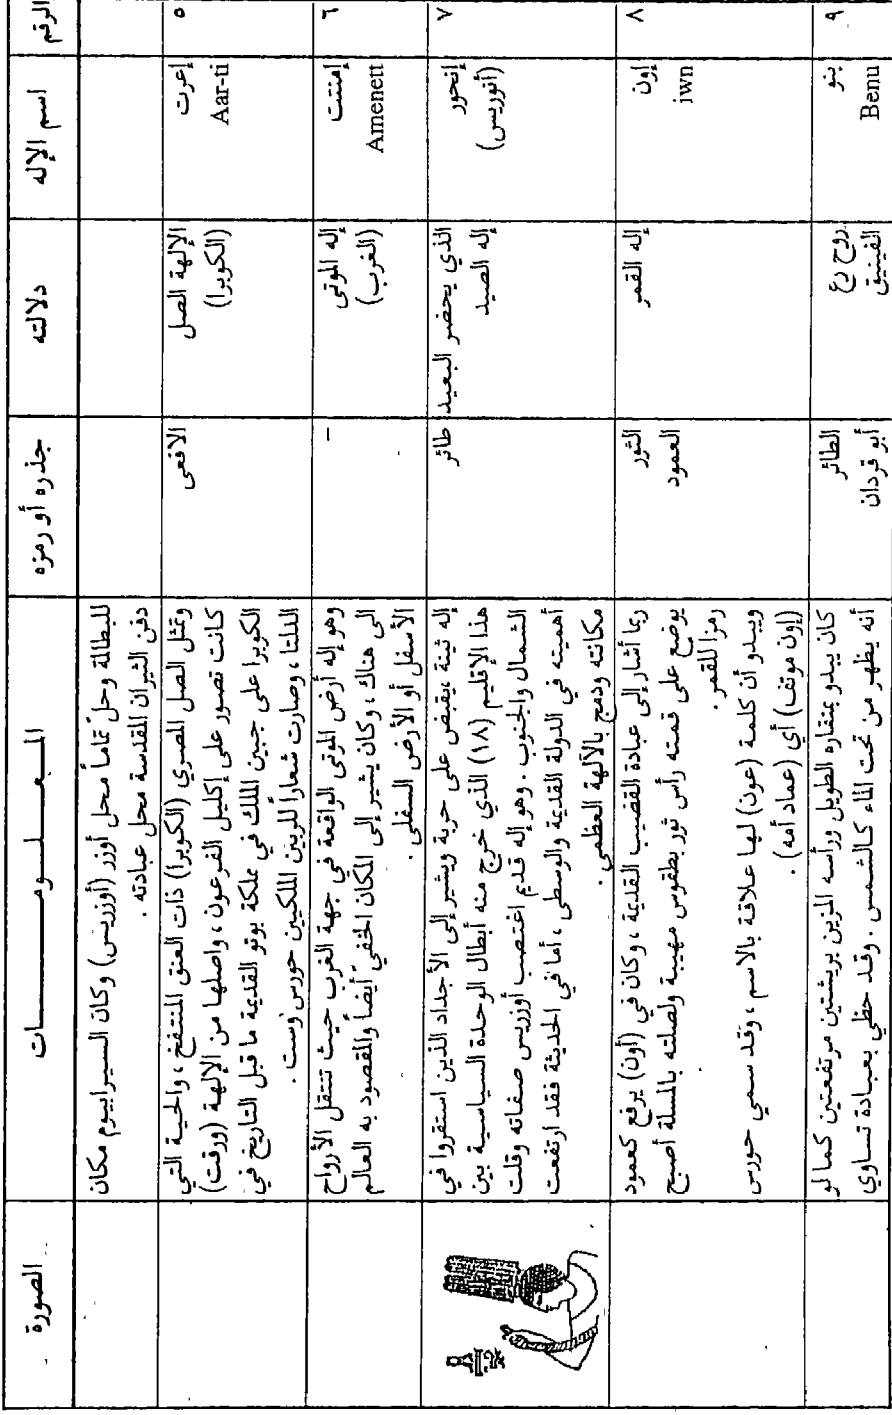 الرقم
اسم الإله
دلالته
جذره أو رمزه
المعلومات
الصورة
للبطالة وحلّ تماماً محل أوزر (أوزريس) وكان السيرابيوم مكان
دفن الثيران المقدسة محل عبادته .
٥
إعرت
Aar-ti
الإلهة الصل
(الكوبرا)
الافعى
وتمثل الصل المصري (الكوبرا) ذات العنق المنتفخ ، والحية التي
كانت تصور على إكليل الفرعون ، واصلها من الإلهة (ورقت)
الكوبرا على جبين الملك في مملكة بوتو القديمة ما قبل التاريخ في
الدلتا ، وصارت شعاراً للربين الملكين حورس وست .
٦
إمنتت
Amenett
إله الموتى
(الغرب)
–
وهو إله أرض الموتى الواقعة في جهة الغرب حيث تنتقل الأرواح
الى هناك ، وكان يشير إلى المكان الخفيّ أيضاً والمقصود به العالم
الأسفل أو الأرض السفلى .
٧
إنحور
(أنوريس)
الذي يحضر البعيد
إله الصيد
طائر
إله ثينة ، يقبض على حربة ويشير إلى الأجداد الذين استقروا في
هذا الإقليم (١٨) الذي خرج منه أبطال الوحدة السياسية بين
الشمال والجنوب . وهو إله قديم اغتصب أوزريس صفاته وقلت
أهميته في الدولة القديمة والوسطى ، أما في الحديثة فقد ارتفعت
مكانته ودمج بالآلهة العظمى .
٨
إون
iwn
إله القمر
الثور
العمود
ربما أشار إلى عبادة القضيب القديمة ، وكان في (أون) يرفع كعمود
يوضع على قمته رأس ثور بطقوس مهيبة ولصلته بالمسلة أصبح
رمزا للقمر .
ويبدو أن كلمة (عون) لها علاقة بالاسم ، وقد سمي حورس
(إون موتف) أي (عماد أمه) .
٩
بنو
Benu
روح رع
الفينيق
الطائر
أبو قردان
كان يبدو بمنقاره الطويل ورأسه المزين بريشتين مرتفعتين كما لو
أنه يظهر من تحت الماء كالشمس . وقد حظي بعبادة تساوي